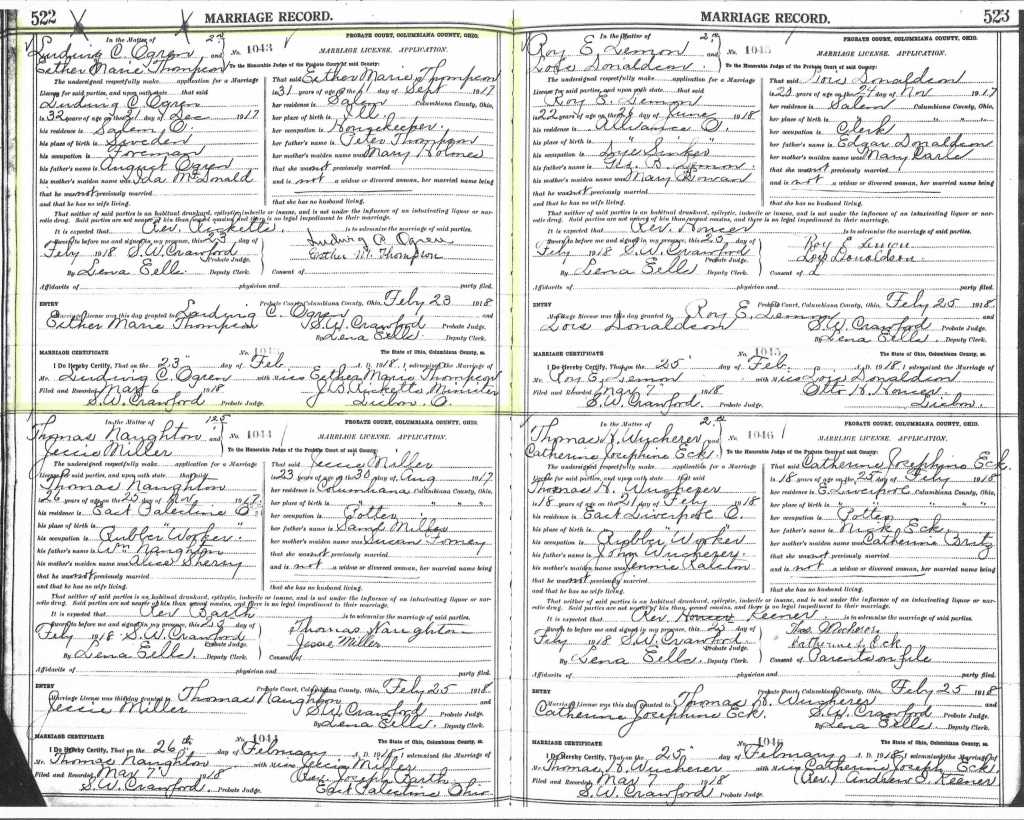 522
MARRIAGE RECORD.
In the Matter of
Ludwig C. Ogren and
Esther Marie Thompson
No. 1043
PROBATE COURT, COLUMBIANA COUNTY, OHIO.
MARRIAGE LICENSE, APPLICATION.
To the Honorable Judge of the Probate Court of said County:
The undersigned respectfully make application for a Marriage
License for said parties, and upon oath state that said
Ludwig C. Ogren
is 32 years of age on the day of Dec 1917
his residence is Salem O.
his place of birth is Sweden
his occupation is Foreman
his father's name is August Ogren
his mother's maiden name was Ida McDonald
that he was not previously married
and that he has no wife living.
That said Esther Marie Thompson
is 31 years of age on the day of Sept 1917
her residence is Salem Columbiana County, Ohio,
her place of birth is Ill.
her occupation is Housekeeper.
her father's name is Peter Thompson
her mother's maiden name was Mary Holmes
that she was not previously married
and is not a widow or divorced woman, her married name being
that she has no husband living.
That neither of said parties is an habitual drunkard, epileptic, imbecile or insane, and is not under the influence of an intoxicating liquor or nar-
cotic drug. Said parties are not nearer of kin than second cousins, and there is no legal impediment to their marriage.
It is expected that Rev. Ricketts is to solemnize the marriage of said parties.
Sworn to before me and signed in my presence, this 23 day of
Feby 1918 S.W. Crawford Probate Judge.
By Lena Eells Deputy Clerk.
Ludwig C. Ogren
Esther M. Thompson
Consent of
Affidavits of physician and party filed.
ENTRY
Probate Court, Columbiana County, Ohio, Feby 23 1918
Marriage License was this day granted to Ludwig C. Ogren
Esther Marie Thompson
S.W. Crawford Probate Judge.
By Lena Eells Deputy Clerk.
MARRIAGE CERTIFICATE
The State of Ohio, Columbiana County, ss.
I Do Hereby Certify, That on the 23" day of Feb. A. D. 1918, I solemnized the Marriage of
Mr. Ludwig C. Ogren with Miss Esther Marie Thompson
Filed and Recorded Mar 6 1918
Ricketts Minister
S.W. Crawford Probate Judge.
Lisbon O.
In the Matter of
Thomas Naughton and
Jessie Miller
No. 1044
PROBATE COURT, COLUMBIANA COUNTY, OHIO.
MARRIAGE LICENSE, APPLICATION.
To the Honorable Judge of the Probate Court of said County:
The undersigned respectfully make application for a Marriage
License for said parties, and upon oath state that said
Thomas Naughton
is 26 years of age on the 25 day of Nov 1917
his residence is East Palestine O.
his place of birth is
his occupation is Rubber Worker.
his father's name is Wm Naughton
his mother's maiden name was Alice Sherry
that he was not previously married
and that he has no wife living.
That said Jessie Miller
is 23 years of age on the day of Aug 1917
her residence is Columbiana Columbiana County, Ohio,
her place of birth is
her occupation is Potter
her father's name is Saml Miller
her mother's maiden name was Susan Tomey
that she was not previously married
and is not a widow or divorced woman, her married name being
that she has no husband living.
That neither of said parties is an habitual drunkard, epileptic, imbecile or insane, and is not under the influence of an intoxicating liquor or nar-
cotic drug. Said parties are not nearer of kin than second cousins, and there is no legal impediment to their marriage.
It is expected that Rev Barth is to solemnize the marriage of said parties.
Sworn to before me and signed in my presence, this day of
Feby 1918 S.W. Crawford Probate Judge.
By Lena Eells. Deputy Clerk.
Thomas Naughton
Jessie Miller
Consent of
Affidavits of physician and party filed.
ENTRY
Probate Court, Columbiana County, Ohio, Feby 25 1918
Marriage License was this day granted to Thomas Naughton
Jessie Miller
S.W. Crawford Probate Judge.
By Lena Eells. Deputy Clerk.
MARRIAGE CERTIFICATE
1044
The State of Ohio, Columbiana County, ss.
I Do Hereby Certify, That on the 26th day of February A. D. 1918, I solemnized the Marriage of
Mr. Thomas Naughton with Miss Jessie Miller
Filed and Recorded Mar 7 1918
Rev. Joseph Barth
S.W. Crawford Probate Judge.
East Palestine Ohio
523
MARRIAGE RECORD.
In the Matter of
Roy E. Lemon and
Lois Donaldson
No. 1045
PROBATE COURT, COLUMBIANA COUNTY, OHIO.
MARRIAGE LICENSE, APPLICATION.
To the Honorable Judge of the Probate Court of said County:
The undersigned respectfully make application for a Marriage
License for said parties, and upon oath state that said
Roy E. Lemon
is 22 years of age on the day of June 1918
his residence is Alliance O.
his place of birth is
his occupation is Die Sinker
his father's name is Lemon
his mother's maiden name was Mary Cowan
that he was not previously married
and that he has no wife living.
That said Lois Donaldson
is 23 years of age on the 24 day of Nov 1917
her residence is Salem Columbiana County, Ohio,
her place of birth is
her occupation is Clerk
her father's name is Edgar Donaldson
her mother's maiden name was Mary Carle
that she was not previously married
and is not a widow or divorced woman, her married name being
that she has no husband living.
That neither of said parties is an habitual drunkard, epileptic, imbecile or insane, and is not under the influence of an intoxicating liquor or nar-
cotic drug. Said parties are not nearer of kin than second cousins, and there is no legal impediment to their marriage.
It is expected that Rev. Houser is to solemnize the marriage of said parties.
Sworn to before me and signed in my presence, this 25 day of
Feby 1918 S.W. Crawford Probate Judge.
By Lena Eells Deputy Clerk.
Roy E. Lemon
Lois Donaldson
Consent of
Affidavits of physician and party filed.
ENTRY
Probate Court, Columbiana County, Ohio, Feby 25 1918
Marriage License was this day granted to Roy E. Lemon
Lois Donaldson
S.W. Crawford Probate Judge.
By Lena Eells. Deputy Clerk.
MARRIAGE CERTIFICATE
1045
The State of Ohio, Columbiana County, ss.
I Do Hereby Certify, That on the 25" day of Feb. A. D. 1918, I solemnized the Marriage of
Mr. Roy E. Lemon with Miss Lois Donaldson
Filed and Recorded Mar 7 1918
Otto H. Houser
S.W. Crawford Probate Judge.
Lisbon.
In the Matter of
Thomas N. Wucherer and
Catherine Josephine Eck.
No. 1046
PROBATE COURT, COLUMBIANA COUNTY, OHIO.
MARRIAGE LICENSE, APPLICATION.
To the Honorable Judge of the Probate Court of said County:
The undersigned respectfully make application for a Marriage
License for said parties, and upon oath state that said
Thomas N. Wucherer
is 18 years of age on the day of Feby 1918
his residence is East Liverpool O.
his place of birth is
his occupation is Rubber Worker
his father's name is John Wucherer.
his mother's maiden name was Jennie Ralston
that he was not previously married
and that he has no wife living.
That said Catherine Josephine Eck
is 18 years of age on the 25 day of Feby 1918
her residence is E. Liverpool Columbiana County, Ohio,
her place of birth is
her occupation is Potter
her father's name is Eck
her mother's maiden name was Catherine Britz
that she was not previously married
and is not a widow or divorced woman, her married name being
that she has no husband living.
That neither of said parties is an habitual drunkard, epileptic, imbecile or insane, and is not under the influence of an intoxicating liquor or nar-
cotic drug. Said parties are not nearer of kin than second cousins, and there is no legal impediment to their marriage.
It is expected that Rev. Keener is to solemnize the marriage of said parties.
Sworn to before me and signed in my presence, this 25 day of
Feby 1918 S.W. Crawford Probate Judge.
By Lena Eells Deputy Clerk.
Thos. Wucherer
Catherine J. Eck
Consent of Parents on file
Affidavits of physician and party filed.
ENTRY
Probate Court, Columbiana County, Ohio, Feby 25 1918
Marriage License was this day granted to Thomas N. Wucherer
Catherine Josephine Eck.
S.W. Crawford Probate Judge.
By Lena Eells. Deputy Clerk.
MARRIAGE CERTIFICATE
1046
The State of Ohio, Columbiana County, ss.
I Do Hereby Certify, That on the 25" day of February A. D. 1918, I solemnized the Marriage of
Mr. Thomas N. Wucherer with Miss Catherine Joseph Eck.
Filed and Recorded Mar 7 1918
(Rev.) Andrew S. Keener
S.W. Crawford Probate Judge.